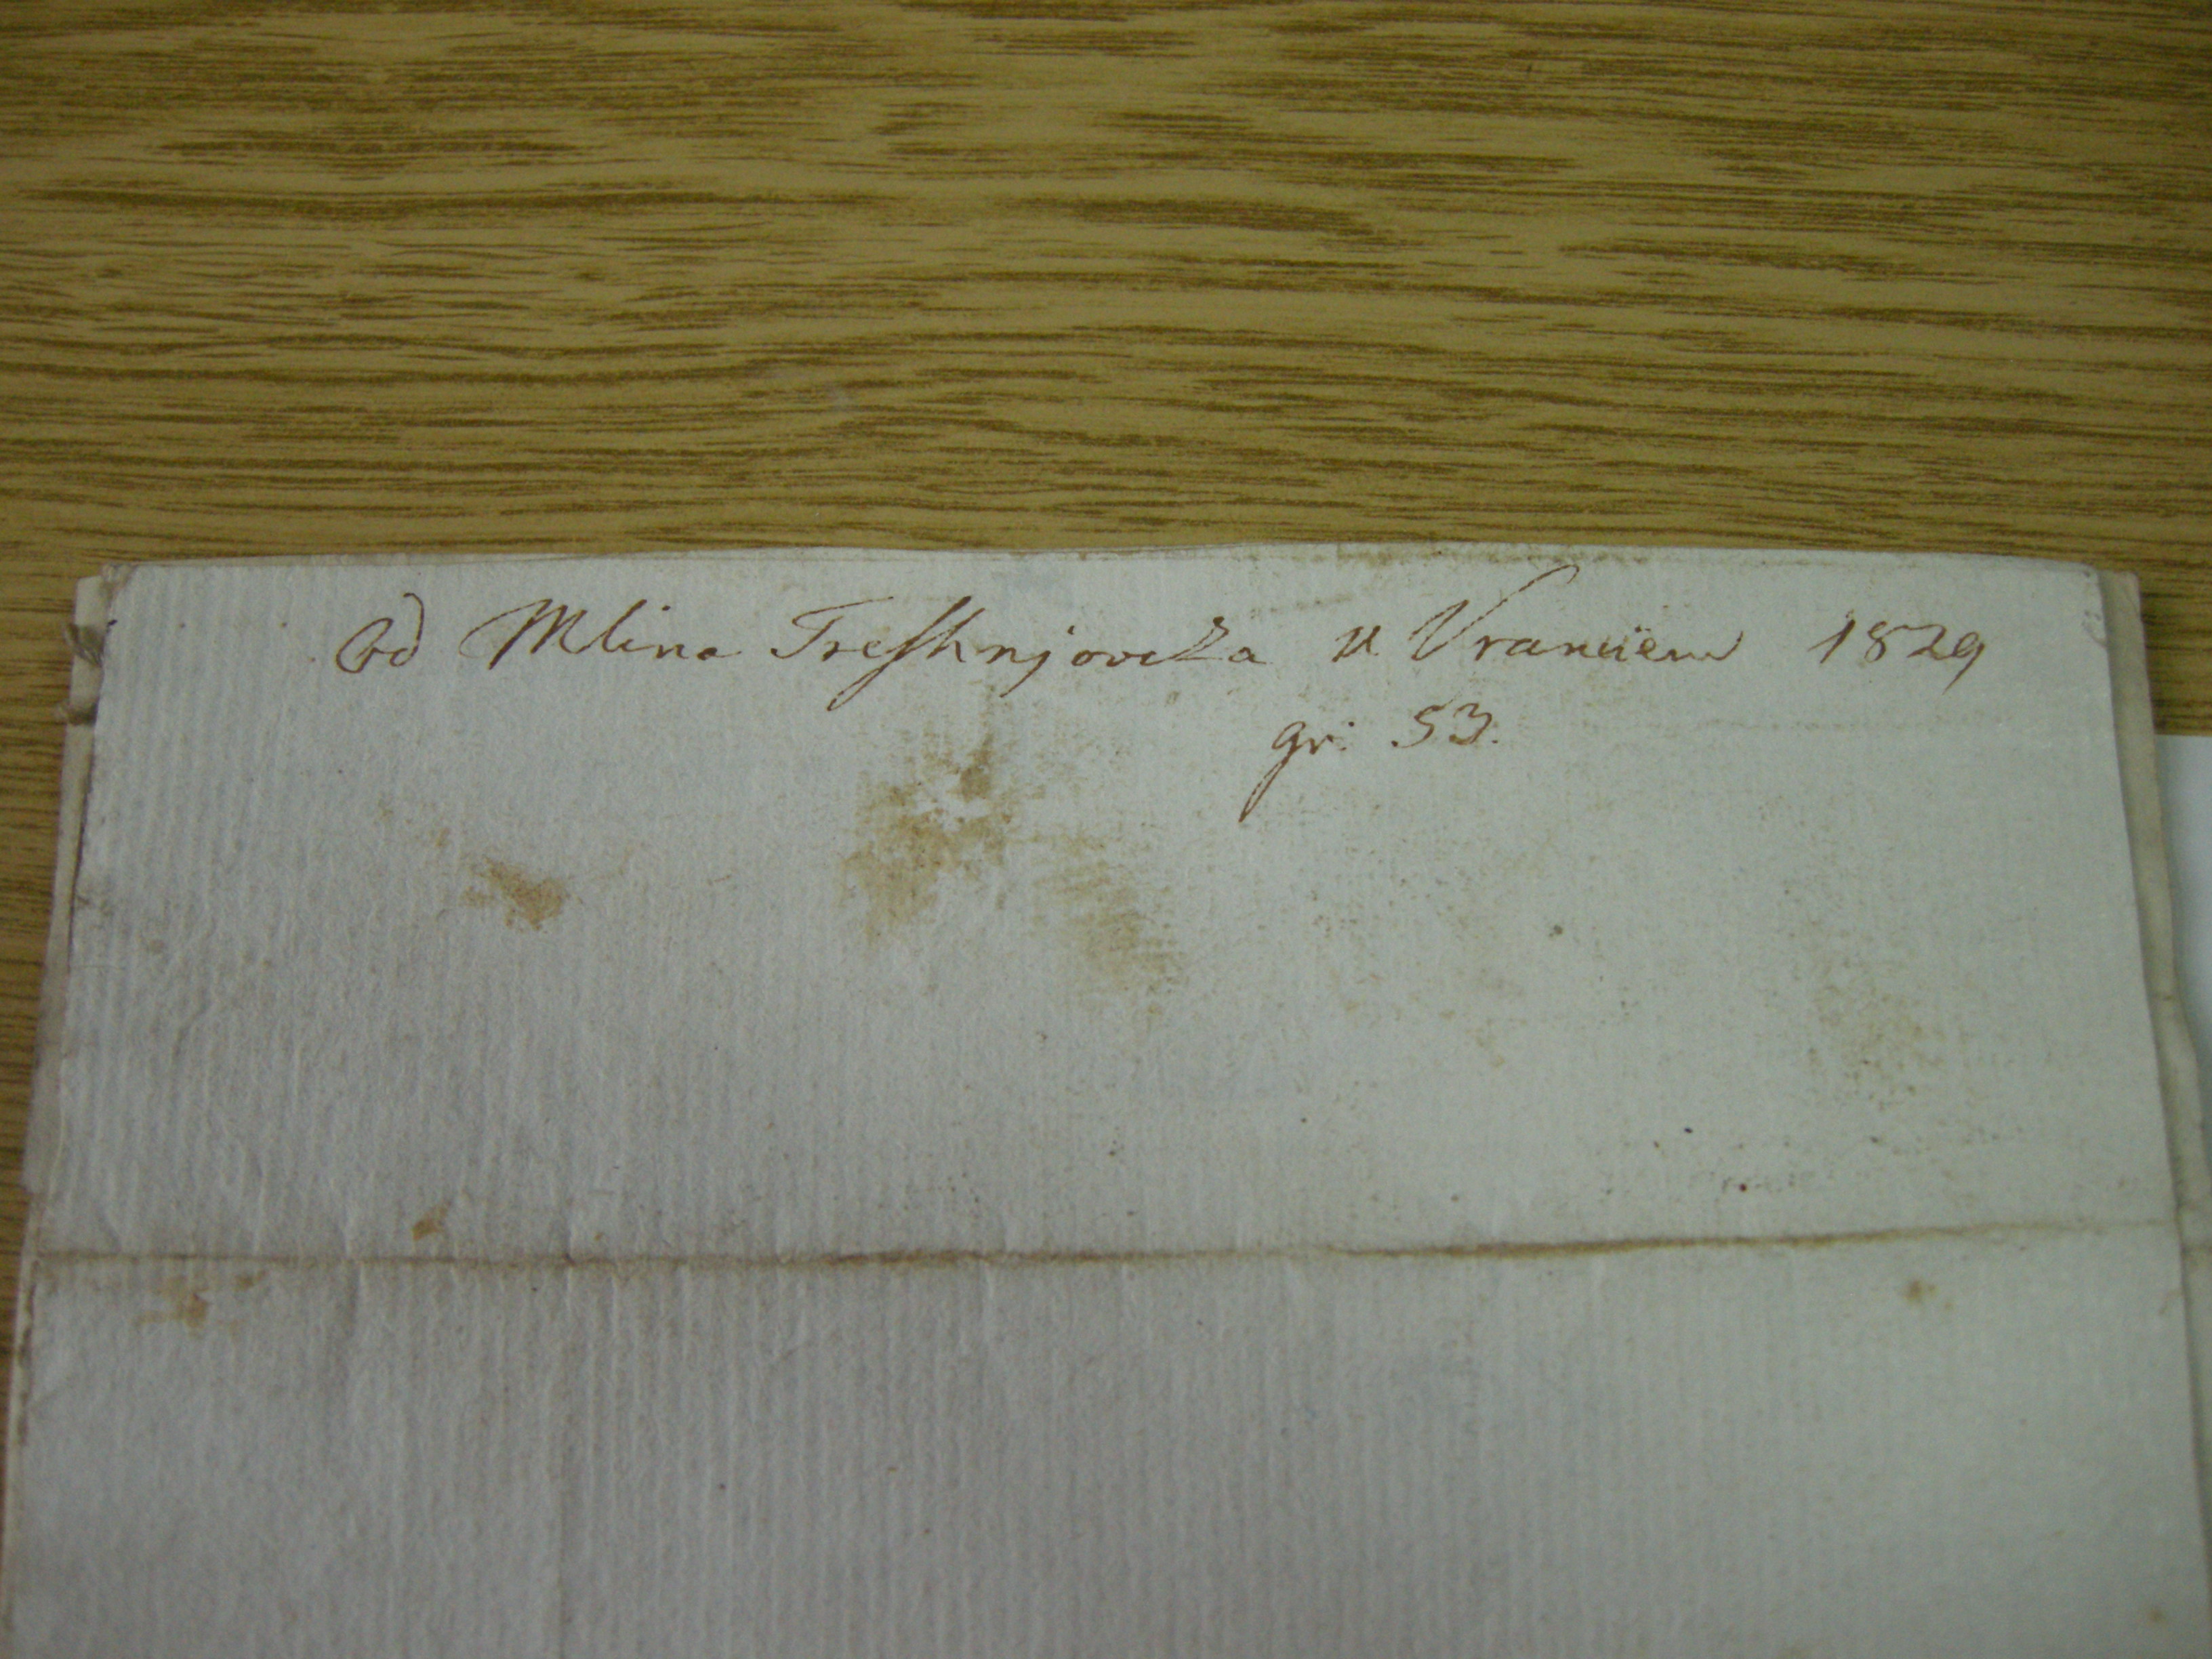 Od Mlina Treshnjovcza u Vranüem 1829
gr: 53.